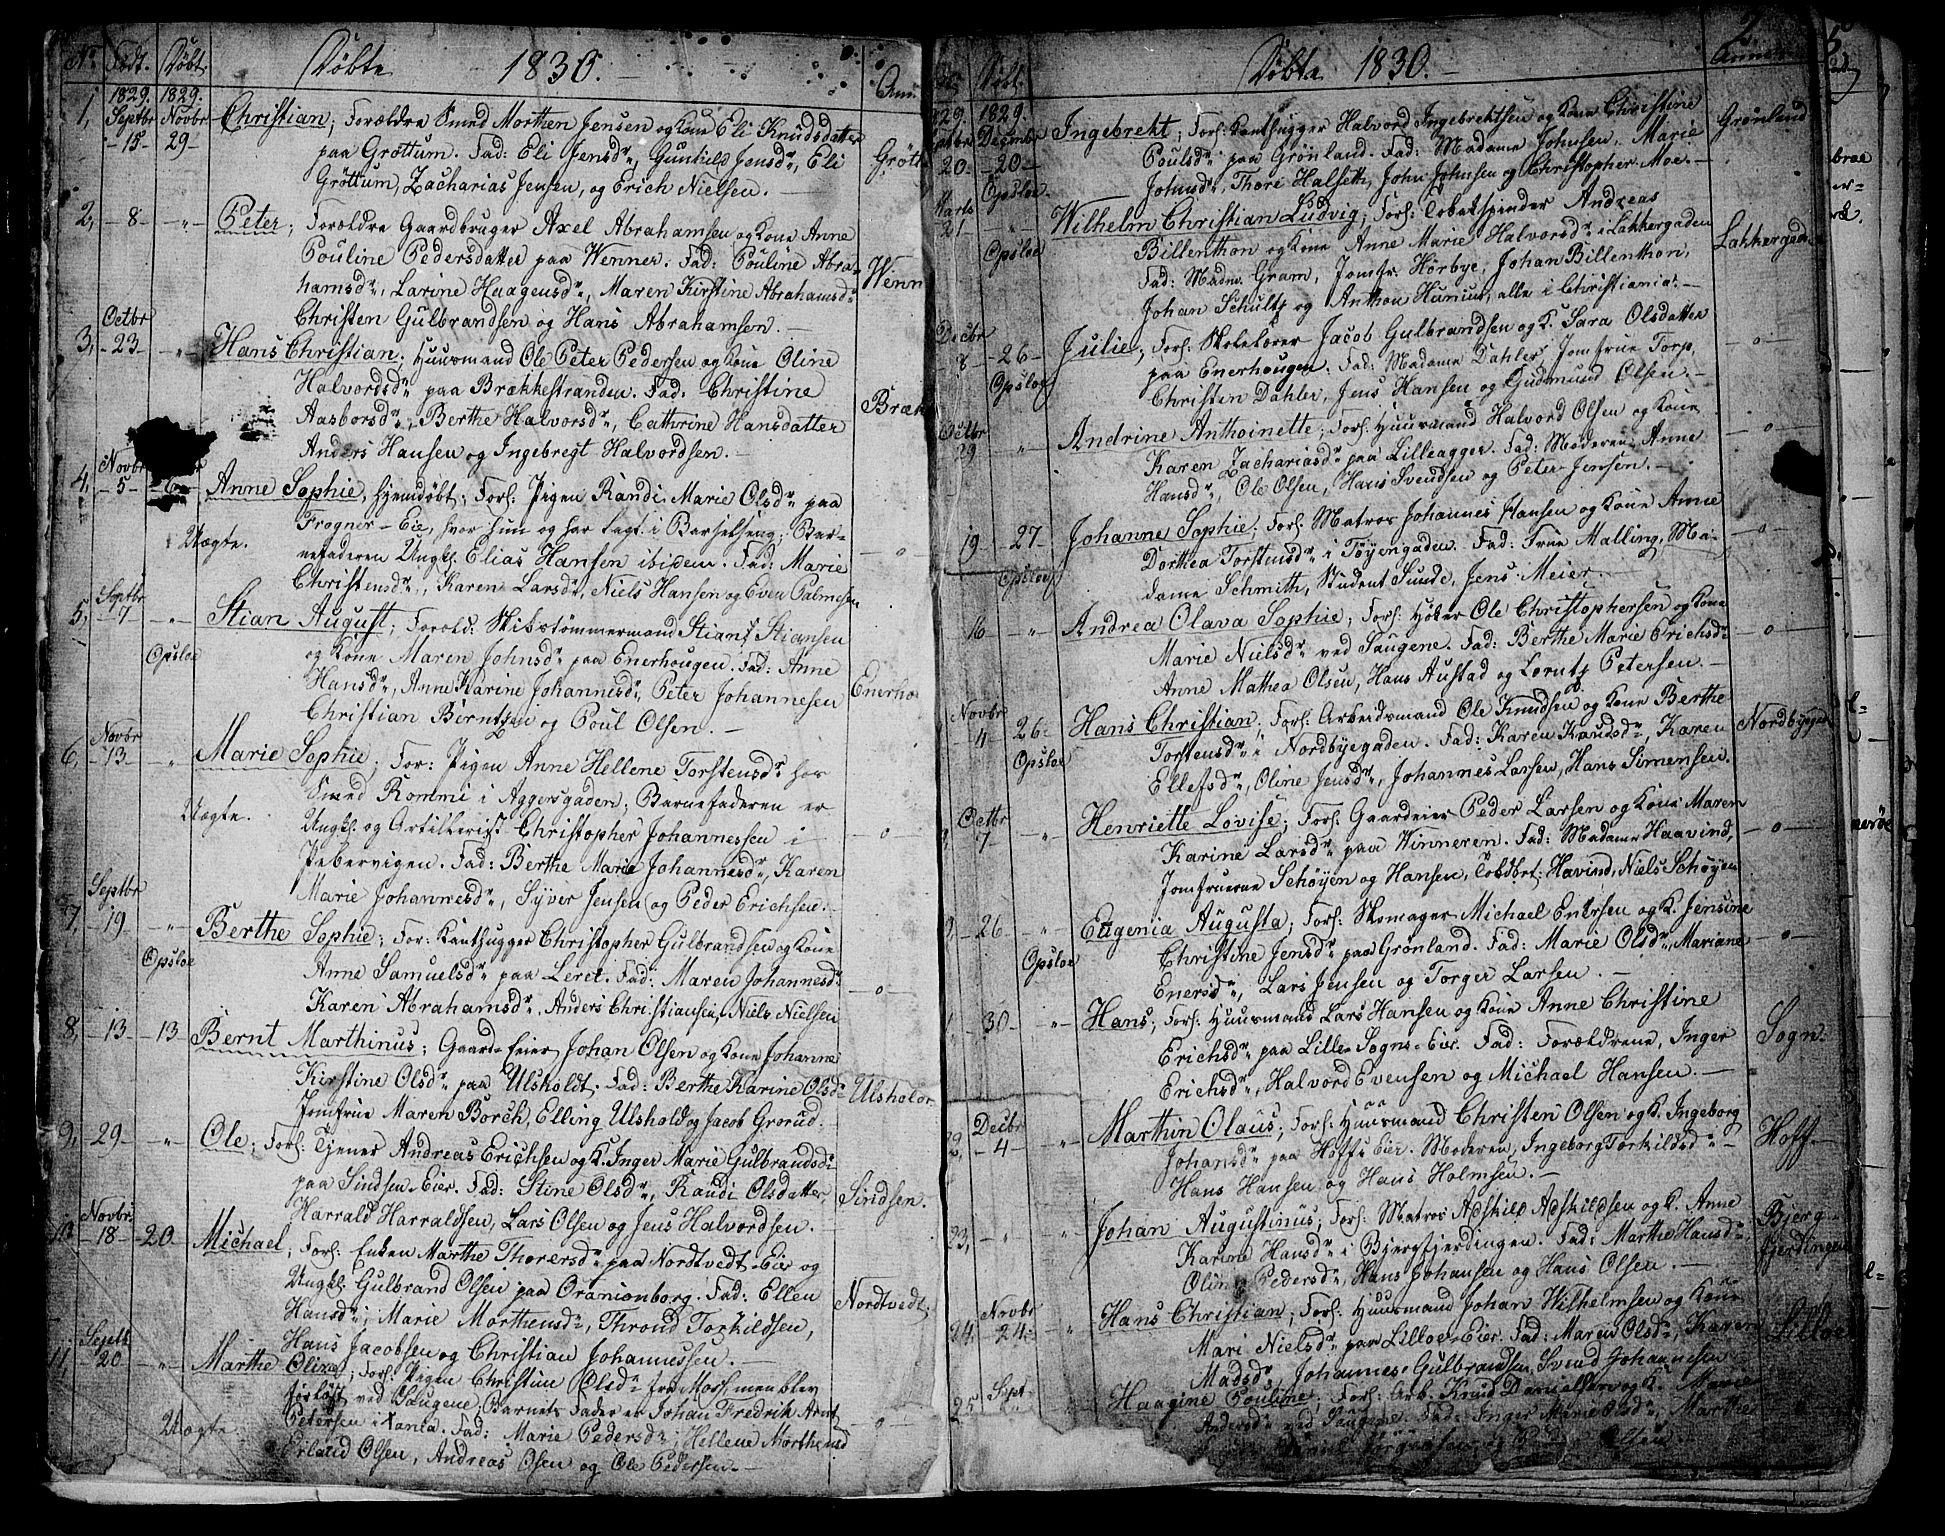 No. Födt. Döbt. Döbte 1830. Anm.
1829. 1829.
1, Septbr 15 Novbr 29 Christian; Forældre Smed Morthen Jensen og Kone Eli Knudsdatter
paa Gröttum. Fad: Eli Jensdr, Gunhild Jensdr, Eli
Gröttum, Zacharias Jensen, og Erich Nielsen. Gröt
2, 8 " Peter; Forældre Gaardbruger Axel Abrahamsen og Kone Anne
Pouline Pedersdatter paa Wenner. Fad: Pouline Abra-
hamsdr, Larine Haagensdr, Maren Kirstine Abrahamsdr Wenn
Christen Gulbrandsen og Hans Abrahamsen.
3, Octbr 23 " Hans Christian; Huusmand Ole Peter Pedersen og Kone Oline
Halvordsdr paa Brækkestranden. Fad: Christine
Aasborsdr, Berthe Halvorsdr, Cathrine Hansdatter Bræk
Anders Hansen og Ingebregt Halvordsen.
4, Novbr 5 6 Anne Sophie, hjemdöbt; Forl: Pigen Randi Marie Olsdr paa
Frogner-Eie, hvor hun og har lagt i Barselseng; Bar-
Uægte. nefaderen Ungkl. Elias Hansen ibidem. Fad: Marie
Christensdr, Karen Larsdr, Niels Hansen og Even Palmesen
5, Septbr 7 " Stian August; Foræld: Skibstömmermand Stian Stiansen
Opsloe og Kone Maren Johnsdr paa Enerhougen. Fad: Anne
Hansdr, Anne Karine Johannesdr, Peter Johannesen Enerho
Christian Berntzen og Poul Olsen.
6, Novbr 13 " Marie Sophie; For: Pigen Anne Hellene Torstensdr hos
Smed Rommi i Aggersgaden; Barnefaderen er
Uægte. Ungkl. og Artillerist Christopher Johannessen i
Pebervigen. Fad: Berthe Marie Johannesdr, Karen
Marie Johannesdr, Syver Jensen og Peder Erichsen.
7, Septbr 19 " Berthe Sophie; For: Kanthugger Christopher Gulbrandsen og Kone
Opsloe Anne Samuelsdr paa Leret. Fad: Maren Johannesdr
Karen Abrahamsdr, Anders Christiansen, Niels Nielsen
8, 13 13 Bernt Marthinus; Gaard-feier Johan Olsen og Kone Johanne
Kirstine Olsdr paa Ulsholdt. Fad: Berthe Karine Olsdr Ulsholdt
Jomfrue Maren Borch, Elling Ulshold og Jacob Grorud.
9, 29 " Ole; Forl: Tjener Andreas Erichsen og K. Inger Marie Gulbrandsdr
paa Sindsen-Eier. Fad: Stine Olsdr, Randi Olsdatter Sindsen.
Harrald Harraldsen, Lars Olsen og Jens Halvordsen.
10 Novbr 18 20 Michael; Forl: Enken Marthe Thorersdr paa Nordtvedt-Eie og
Ungkl. Gulbrand Olsen paa Oranionborg. Fad: Ellen
Hansdr, Marie Morthensdr, Thrond Torkildsen, Nordtvedt
Hans Jacobsen og Christian Johannessen.
11 Septbr 20 " Marthe Olize; Forl: Pigen Christine Olsdr fra Moss men blev
forlöst ved Saugene; Barnets Fader er Johan Fredrik Arnt
Uægte Petersen i Xania. Fad: Marie Pedersdr, Hellene Morthensd
Erland Olsen, Andreas Olsen og Ole Pedersen.
Döbte 1830. 2
1829. 1829.
20 Decmbr 20 Ingebrekt; Forl: Kanthugger Halvord Ingebrektsen og Kone Christine Grönland
Opsloe Poulsdr paa Grönland. Fad: Madame Johnsen, Marie
Johnsdr, Thore Halseth, John Johnsen og Christopher Moe.
Marts 21 " Wilhelm Christian Ludvig; Forl: Tobakspinder Andreas
Opsloe Billenthon og Kone Anne Marie Halvorsdr i Lakkergaden Lakkergaden
Fad: Madm. Gram, Jomfr: Hörbye, Johan Billenthon,
Johan Schultz og Anthon Hunur, alle i Christiania.
Decbr 8 26 Julie; Forl: Skolelærer Jacob Gulbrandsen og K. Sara Olsdatter
Opsloe paa Enerhougen. Fad: Madame Dahler, Jomfrue Torp,
Christen Dahler, Jens Hansen og Gudmund Olsen.
Octbr 29 " Andrine Anthoinette; Forl: Huusmand Halvord Olsen og Kone
Karen Zachariasdr paa Lilleagger. Fad: Moderen, Anne
Hansdr, Ole Olsen, Hans Svendsen og Peter Jensen.
19 27 Johanne Sophie; Forl: Matros Johannes Hansen og Kone Anne
Opsloe Dorthea Torstensdr i Töyengaden. Fad: Frue Malling, Ma-
dame Schmith, Student Sunde, Jens Meier.
16 " Andrea Olava Sophie; Forl: Höker Ole Christophersen og Kone
Marie Nielsdr ved Saugene. Fad: Berthe Marie Erichsdr
Anne Mathea Olsen, Hans Austad og Lorntz Petersen.
Novbr 4 26 Hans Christian; Forl: Arbeidsmand Ole Knudsen og Kone Berthe
Opsloe Torstensdr i Nordbyegaden. Fad: Karen Knudsdr, Karen Nordbyegad
Ellefsdr, Oline Jensdr, Johannes Larsen, Hans Simensen.
Octbr 7 " Henriette Lovise; Forl: Gaardeier Peder Larsen og Kone Maren
Karine Larsdr paa Winneren. Fad: Madame Haavind,
Jomfruerne Schöyen og Hansen, Toldbet: Havind, Niels Schöyen
26 " Eugenia Augusta; Forl: Skomager Michael Enersen og K. Jensine
Opsloe Christine Jensdr paa Grönland. Fad: Marie Olsdr, Mariane
Enersdr, Lars Jensen og Torger Larsen.
30 " Hans; Forl: Huusmand Lars Hansen og Kone Anne Christine
Erichsdr paa Lille-Sogns-Eier. Fad: Forældrene, Inger Sogn
Erichsdr, Halvord Evensen og Michael Hansen.
22, Decbr 4 " Marthin Olaus; Forl: Huusmand Christen Olsen og K. Ingeborg
Johansdr paa Hoffs Eier. Moderen, Ingeborg Torkildsdr Hoff
Hans Hansen og Hans Holmsen.
23, " " Johan Augustinus; Forl: Matros Adskild Adskildsen og K. Anne Bjerg-
Karine Hansdr i Bjergfjerdingen. Fad: Marthe Hansdr, fjerdingen
Oline Pedersdr, Hans Johansen og Hans Olsen.
24, Novbr 24 " Hans Christian; Forl: Huusmand Johan Wilhelmsen og Kone
Mari Nielsdr paa Lilloe-Eier. Fad: Maren Olsdr, Karen Lilloe
Madsdr, Johannes Gulbrandsen, Svend Johannesen
25, Sept Haagine Pouline; Forl: Arb. Knud Danielsen og K. Marie
Andersdr ved Saugene. Fad: Inger Marie Olsdr, Marthe
Olsen